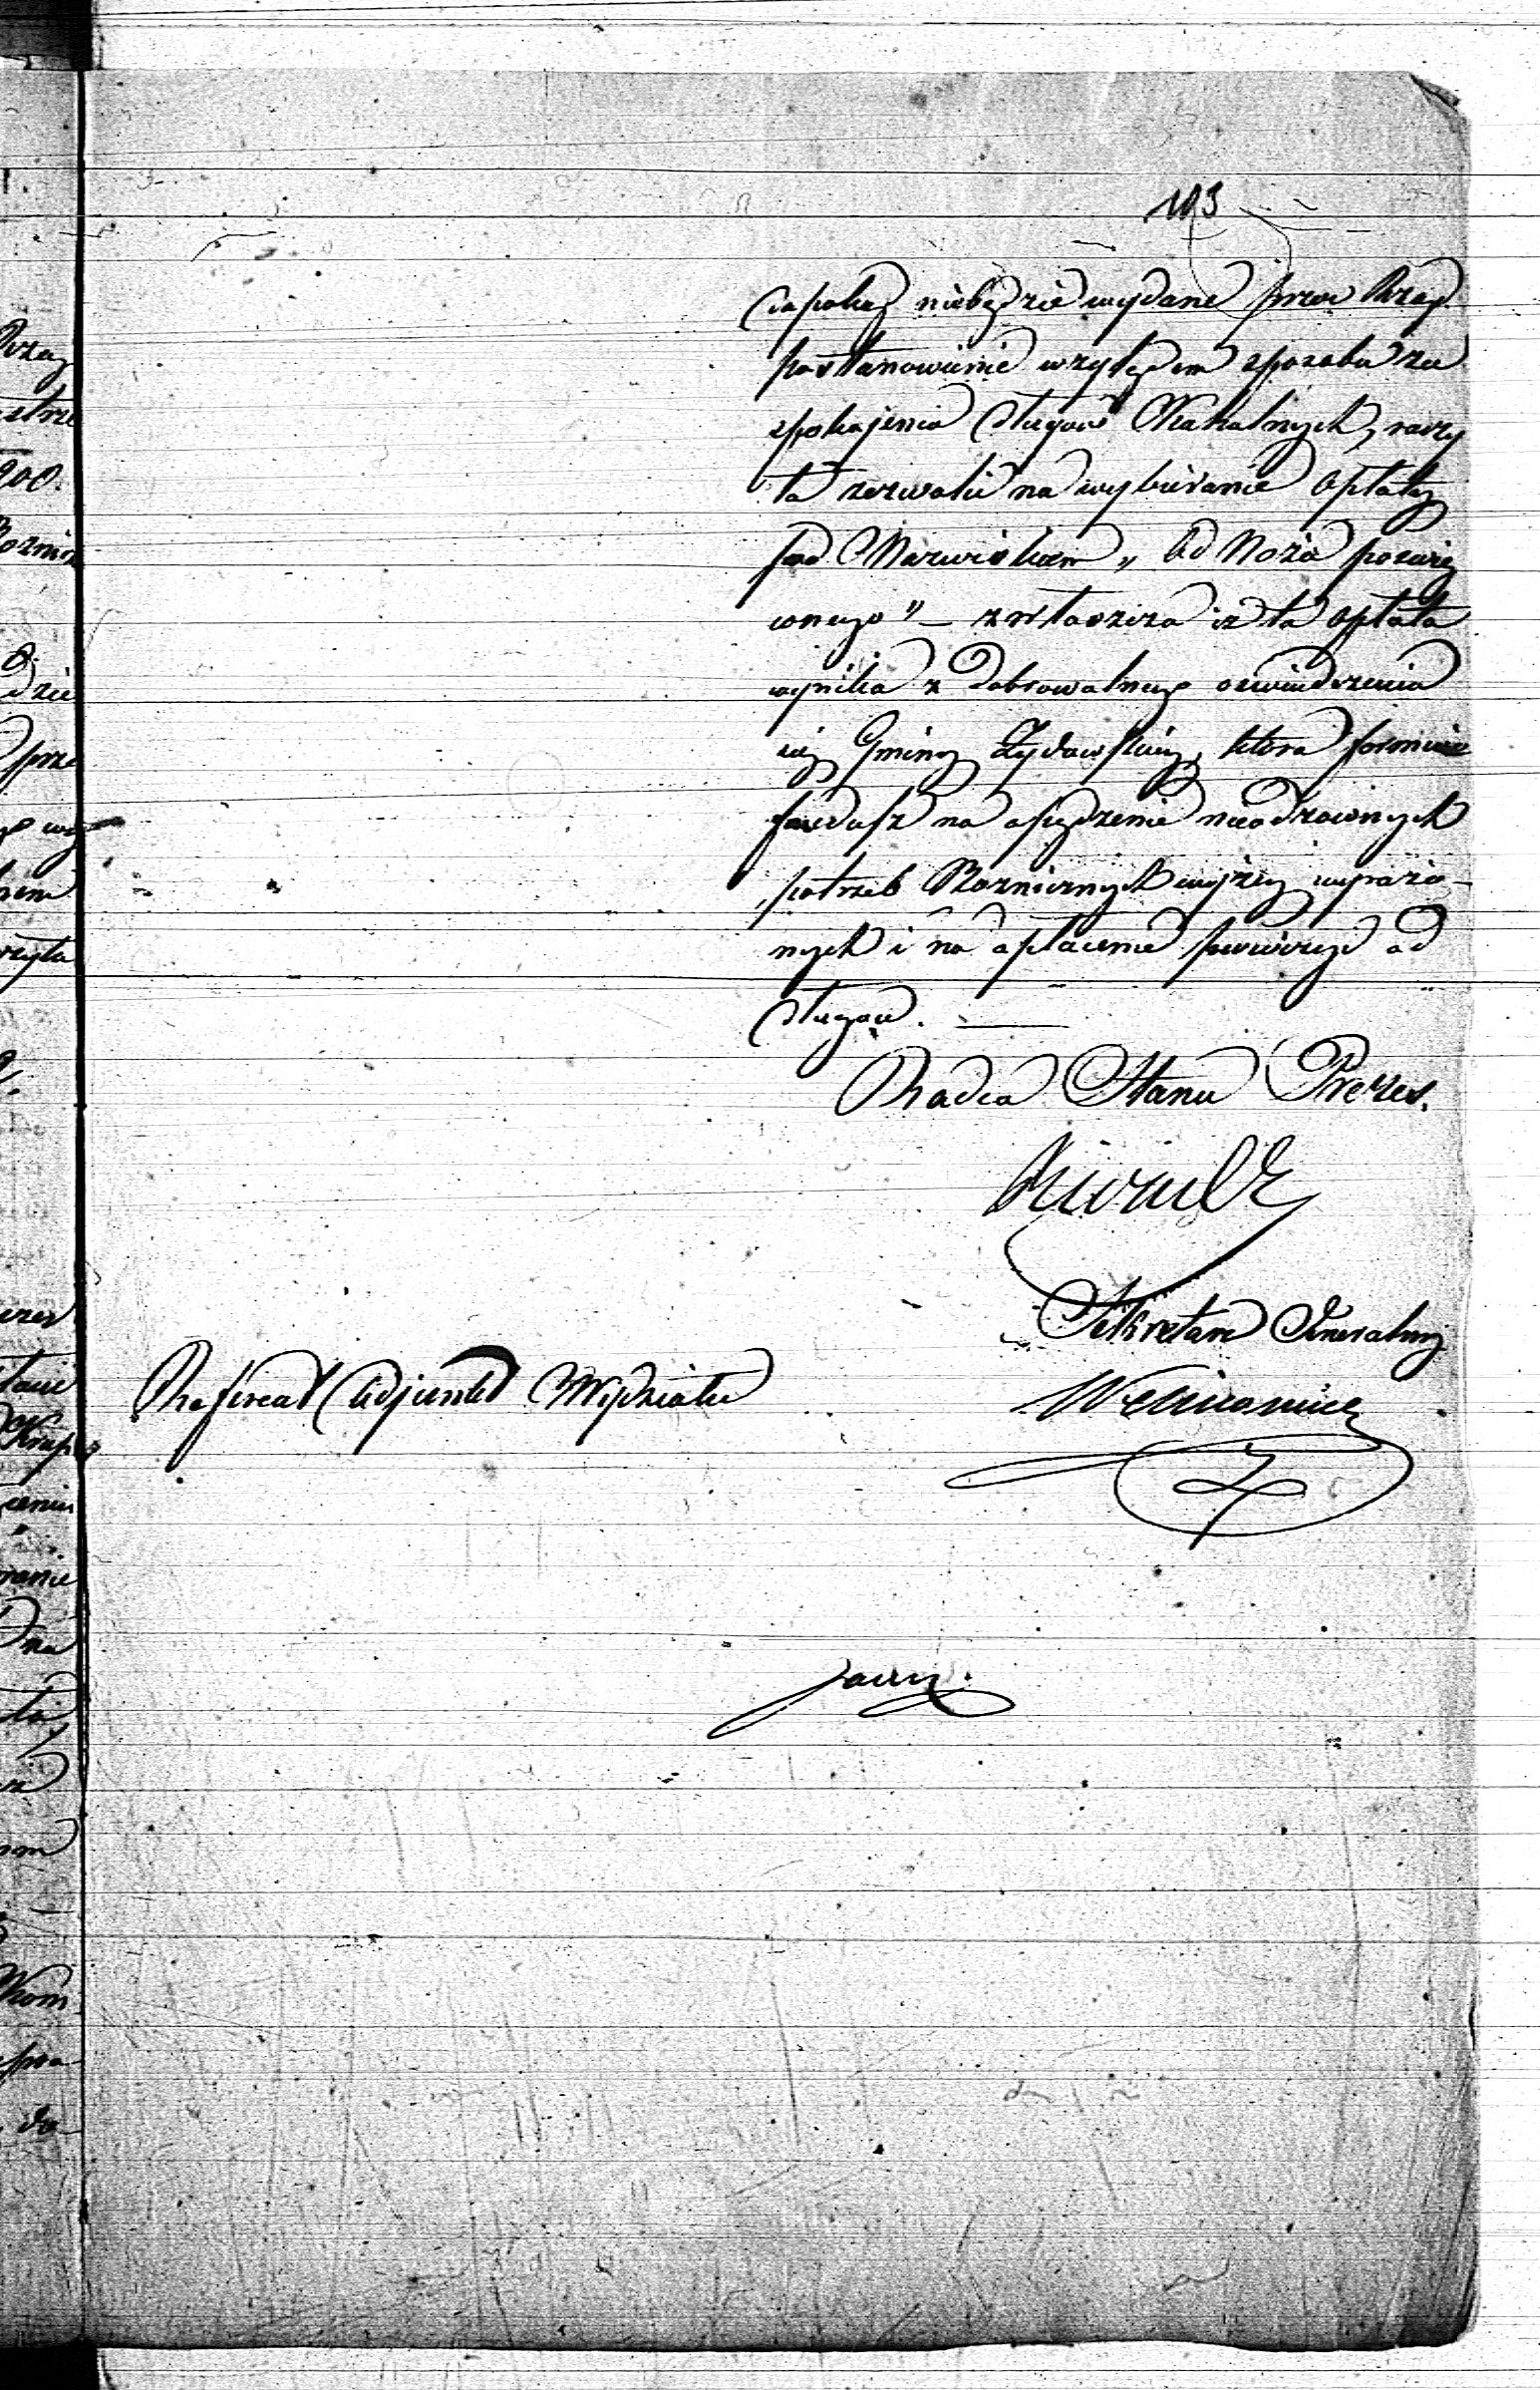 103
dopokąd niebędzie wydane przez Rząd
postanowienie względem sposobu za
spokojenia długów Kahalnych, raczy
ta zezwolić na wybieranie opłaty
pod Nazwiskiem „Od Noża poświę
conego" — zwłaszcza iż ta opłata
wynika z dobrowolnego oświadczenia
się Gminy Żydowskiej, która formuie
fundusz na opędzenie nieodzownych
potrzeb Bożnicznych wyżey wyrażo-
nych i na opłacenie prowizyi od
długów. —
Radca Stanu Prezes.
Sekretarz Generalny
Referent Adjunkt Wydziału